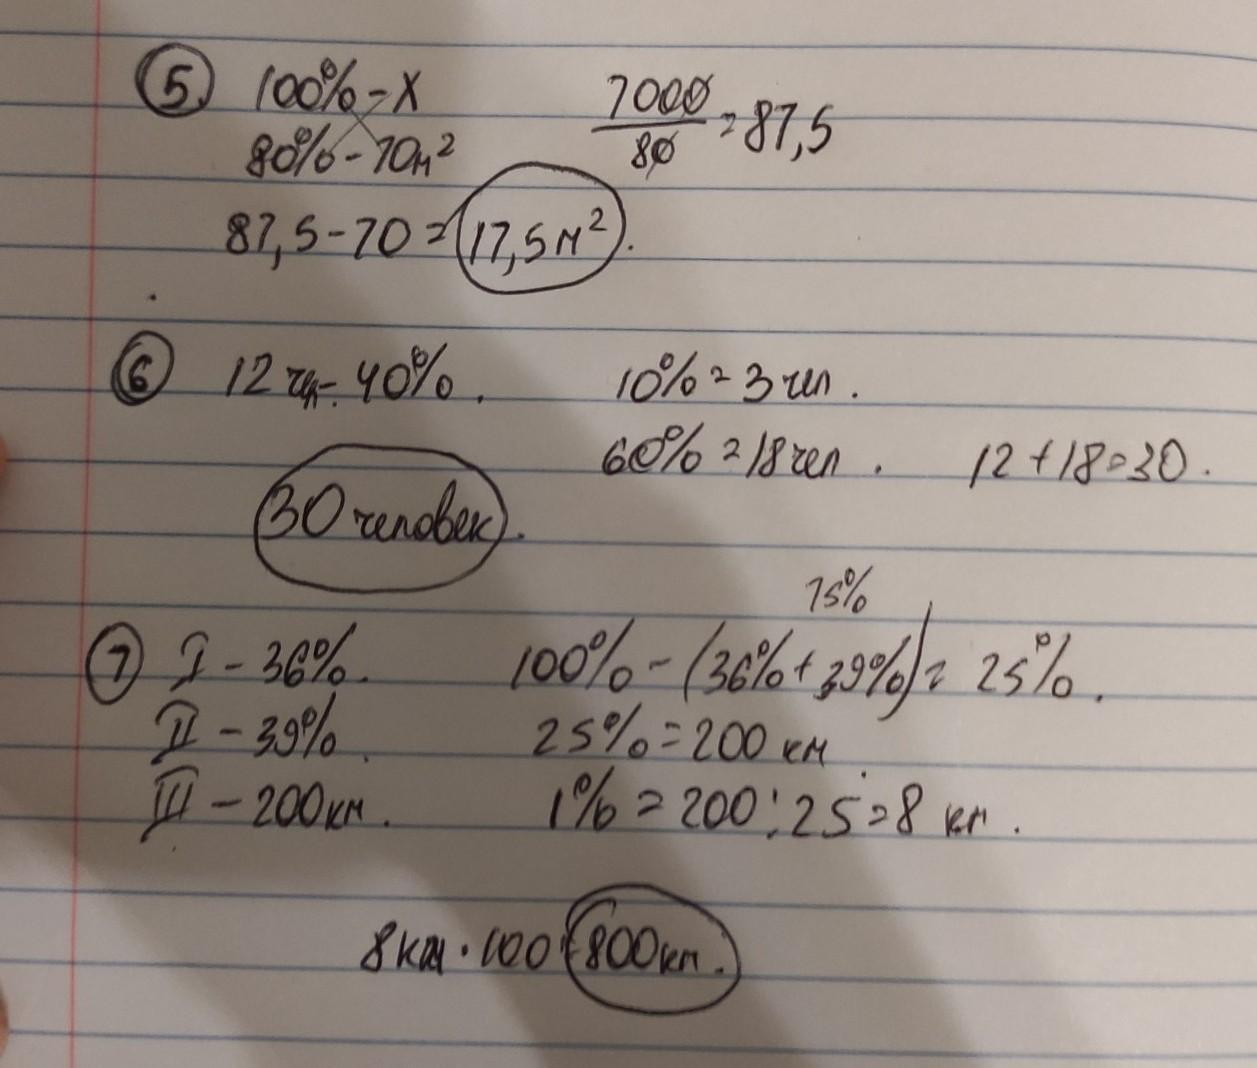 5. 100% - x
80% - 70м²
7000/80 = 87,5
87,5 - 70 = 17,5 м².
6 12 чел - 40%. 10% = 3 чел.
60% = 18 чел. 12 + 18 = 30.
30 человек.
75%
7 I - 36%. 100% - (36% + 39%) = 25%.
II - 39%. 25% = 200 км.
III - 200км. 1% = 200 : 25 = 8 км.
8км · 100 = 800км.